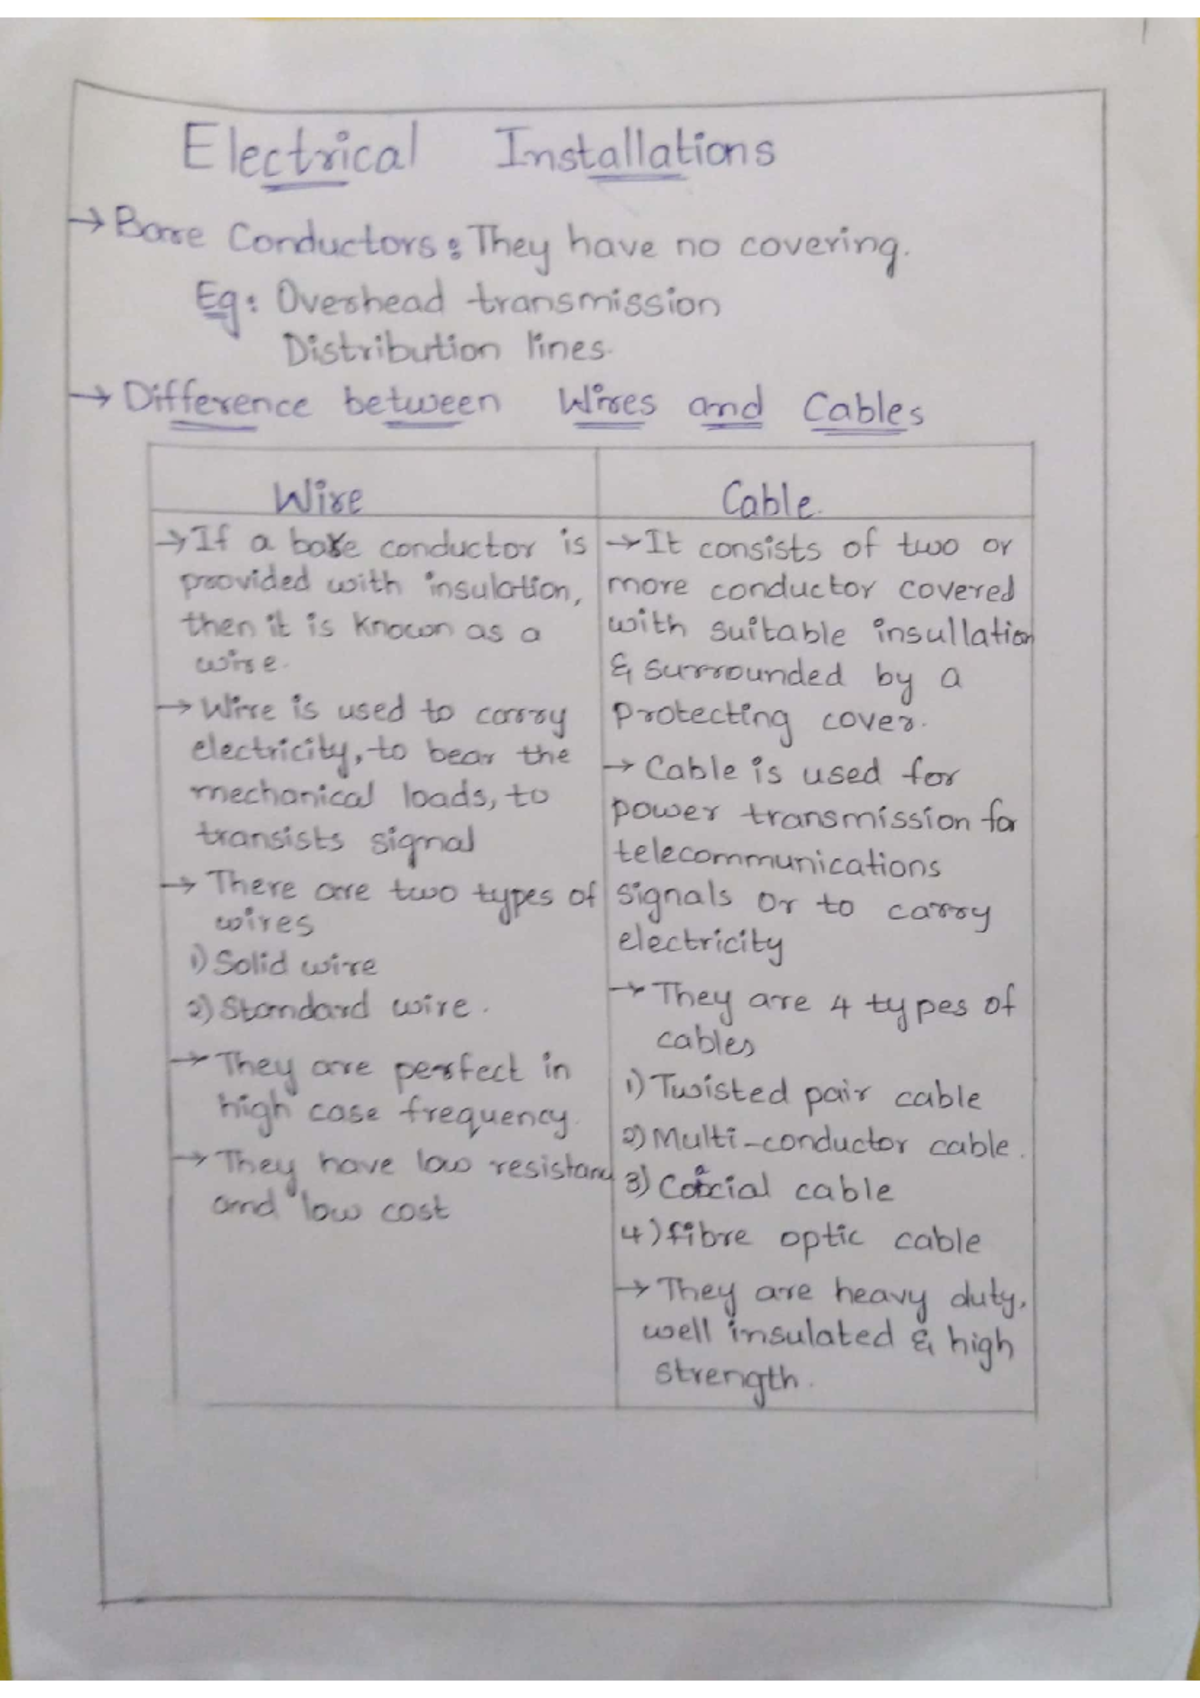 Electrical Installations
→ Bare Conductors : They have no covering.
Eg : Overhead transmission
Distribution lines.
→ Difference between Wires and Cables
Wire
→ If a bare conductor is
provided with insulation,
then it is known as a
wire.
→ Wire is used to carry
electricity, to bear the
mechanical loads, to
transists signal
→ There are two types of
wires
1) Solid wire
2) Standard wire.
→ They are perfect in
high case frequency.
→ They have low resistance
and low cost
Cable.
→ It consists of two or
more conductor covered
with suitable insullation
& surrounded by a
protecting cover.
→ Cable is used for
power transmission for
telecommunications
signals or to carry
electricity
→ They are 4 types of
cables
1) Twisted pair cable
2) Multi-conductor cable.
3) cable
4) fibre optic cable
→ They are heavy duty,
well insulated & high
strength.